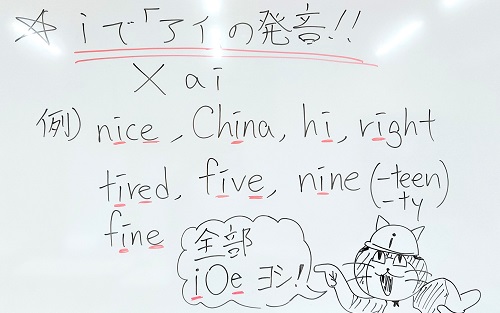 ☆ iで「アイ」の発音!!
× ai
例) nice, China, hi, right
tired, five, nine (-teen)
-ty
fine
全部
i〇e ヨシ!
i